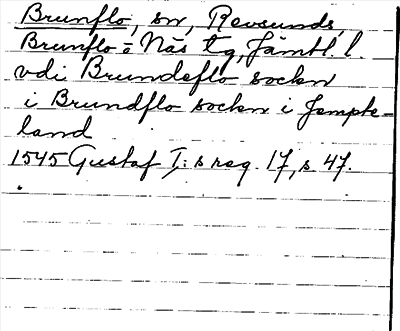 Brunflo, sn, Revsunds,
Brunflo o Näs tg, Jämtl. l.
vdi Brundeflo sockn
i Brundflo sockn i Jempte-
land
1545 Gustaf I:s reg. 17, s 47.